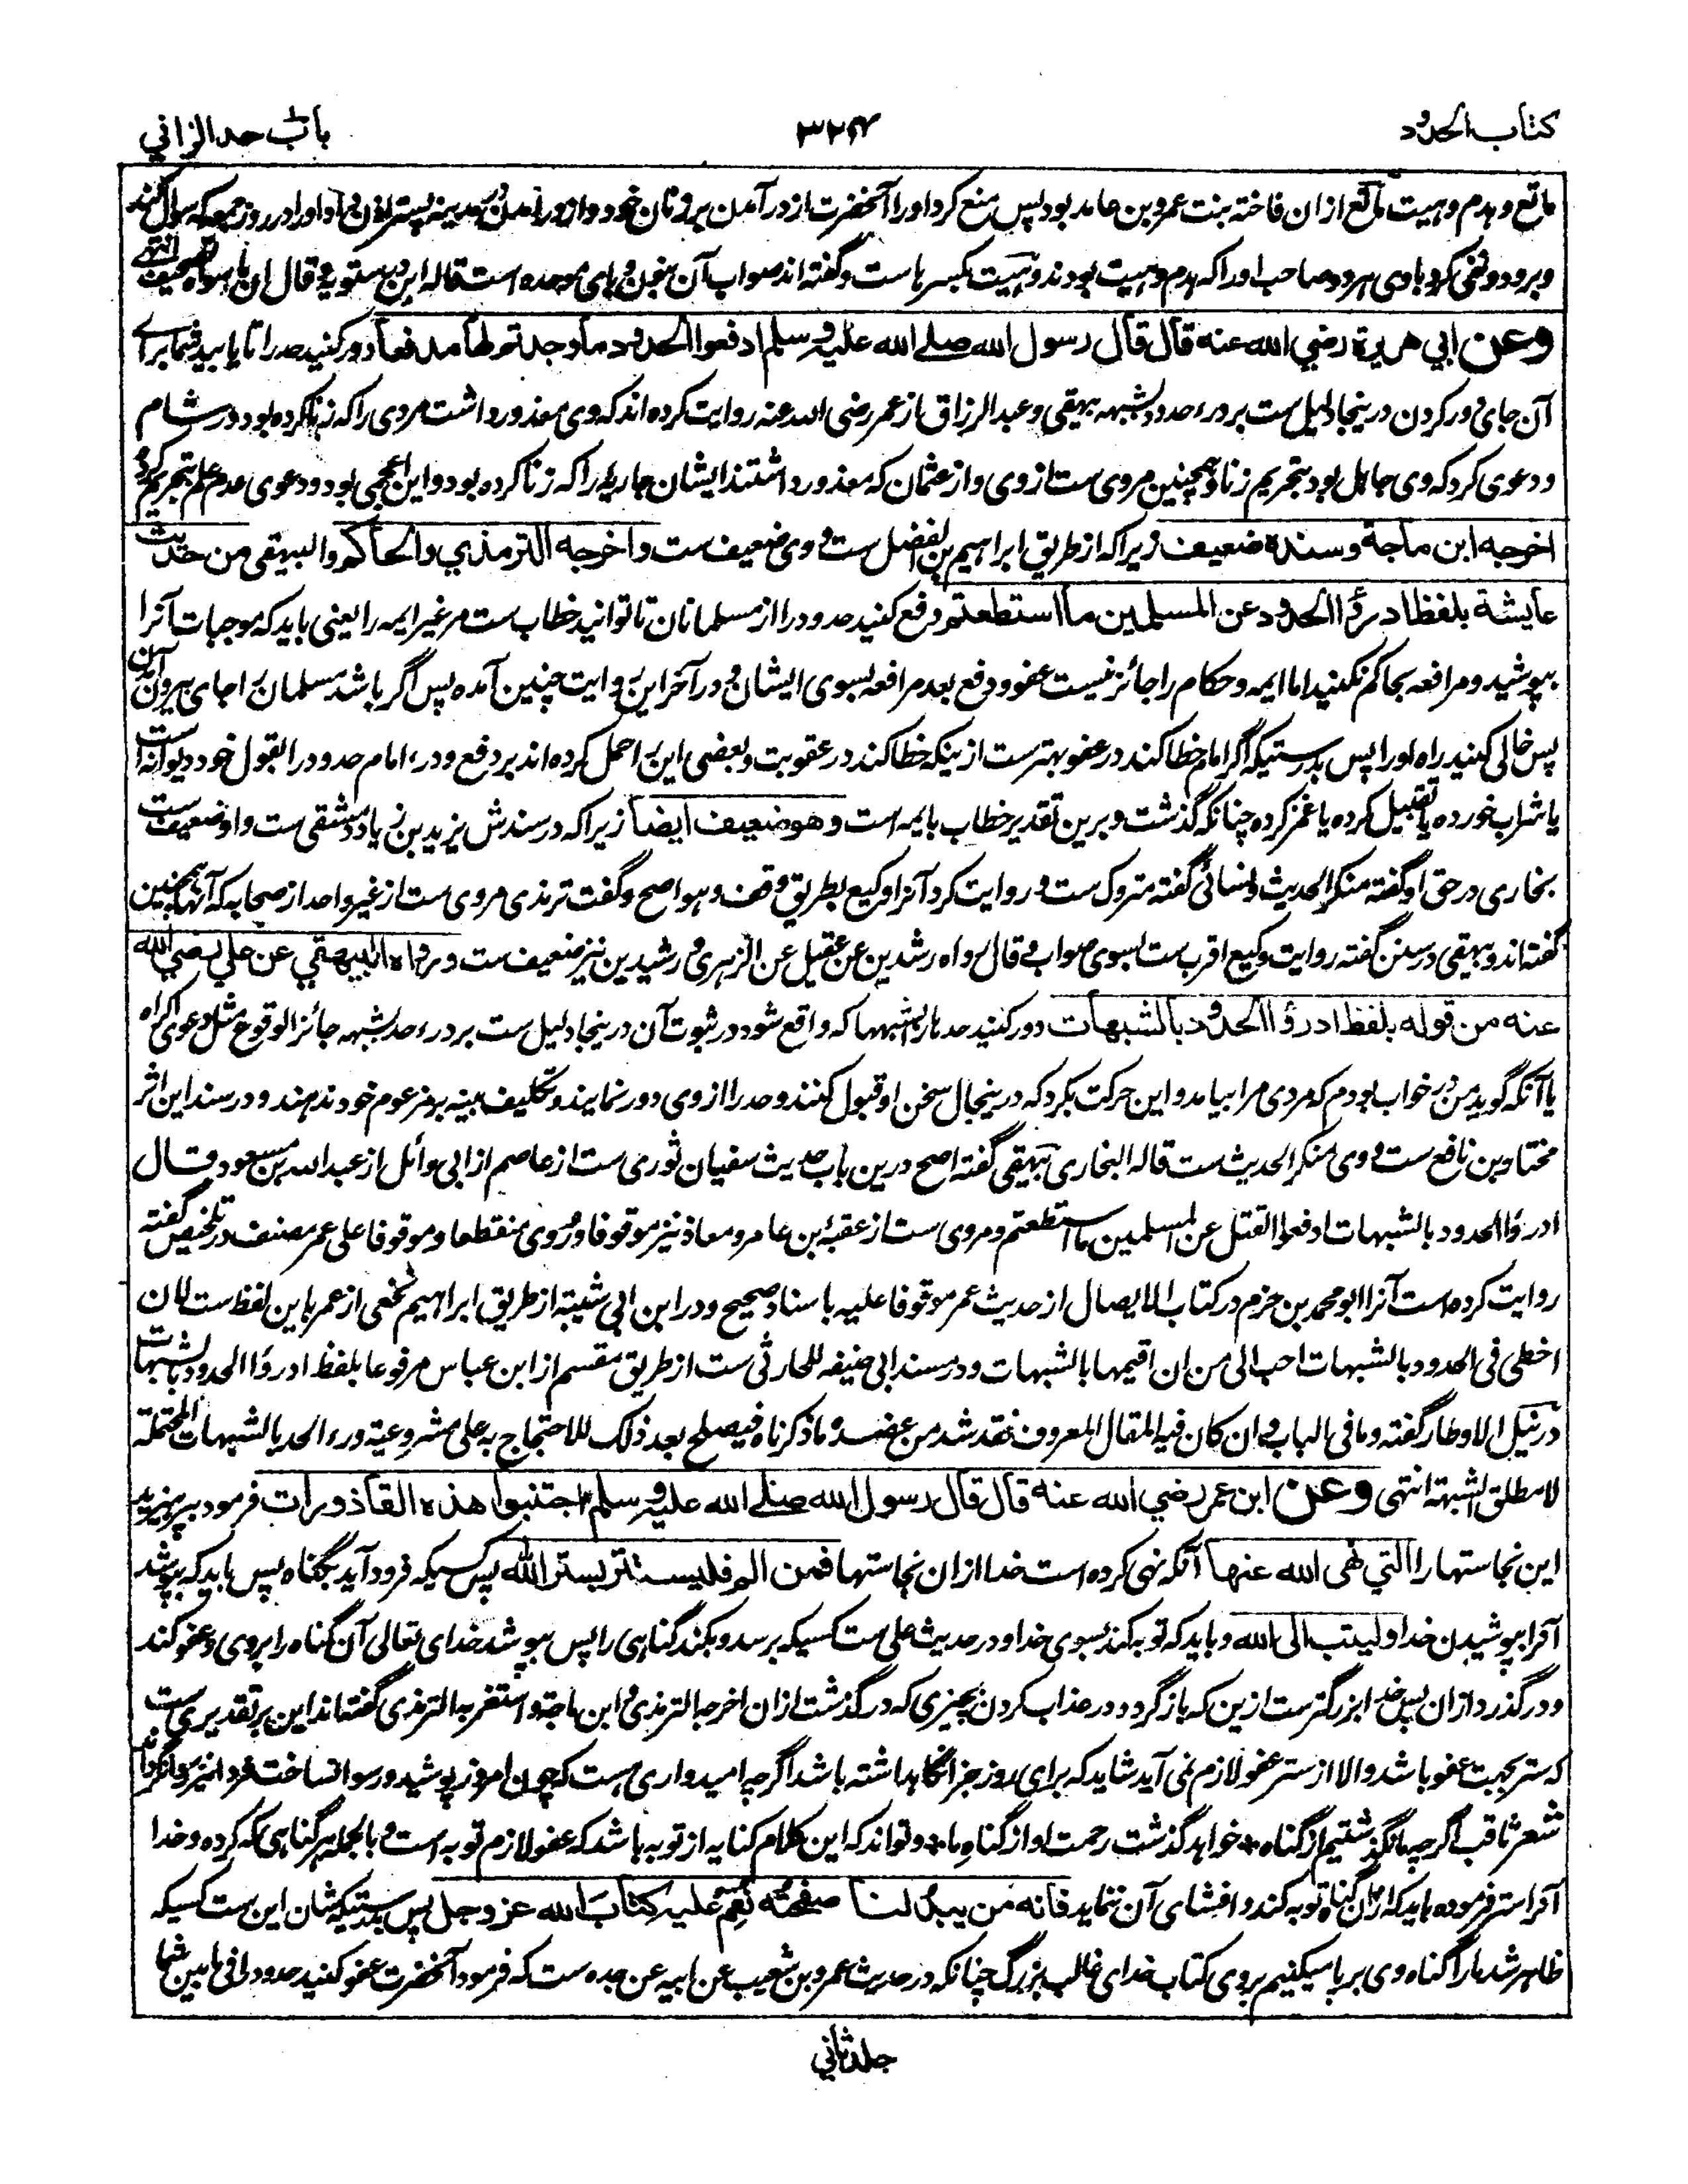 كتاب الحدود
۳۲۴
باب حد الزاني
ماتع و هدم و هیت ماتع ازان فاخته بنت عمرو بن عامد بود پس منع کرد او را آنحضرت از در آمدن بر زنان خود و از در آمدن مدینه پستر اذن داد او را در روز جمعه که سوال کند
و برود و نفی کرد با وی هر دو صاحب او را که هدم و هیت بودند و هیت بکسر ها ست و گفته اند صواب آن بنون و بای موحده است قاله ابن درستویه و قال ان ما سواه تصحیف انتهی
وعن ابي هريرة رضي الله عنه قال قال رسول الله صلى الله عليه وسلم ادفعوا الحدود ما وجدتم لها مدفعا دور کنید حد را تا بیابید شما برای
آن جای دور کردن درینجا دلیل ست بر درء حدود بشبهه بیهقی و عبد الرزاق از عمر رضی الله عنه روایت کرده اند که وی معذور داشت مردی را که زنا کرده بود در شام
و دعوی کرد که وی جاهل بود بتحریم زنا و همچنین مروی ست از وی و از عثمان که معذور داشتند ایشان جاریه را که زنا کرده بود و این عجمی بود و دعوی عدم علم بتحریم کرد
اخرجه ابن ماجة وسنده ضعيف زیرا که از طریق ابراهیم بن الفضل ست و وی ضعیف ست واخرجه الترمذي والحاكم والبيهقي من حديث
عايشة بلفظ ادرؤا الحدود عن المسلمين ما استطعتم دفع کنید حدود را از مسلمانان تا توانید خطاب ست مر غیر ایمه را یعنی باید که موجبات آنرا
بپوشید و مرافعه بحاکم نکنید اما ایمه و حکام را جائز نیست عفو و دفع بعد مرافعه بسوی ایشان و در آخر این روایت چنین آمده پس اگر باشد مسلمان را جای بیرون آمدن
پس خالی کنید راه او را پس بدرستیکه اگر امام خطا کند در عفو بهتر ست از ینکه خطا کند در عقوبت و بعضی این را حمل کرده اند بر دفع و درء امام حدود را بقول خود دیوانه است
یا شراب خورده یا تقبیل کرده یا غمز کرده چنانکه گذشت و برین تقدیر خطاب بایمه است وهو ضعيف ايضا زیرا که در سندش یزید بن زیاد دمشقی ست و او ضعیف ست
بخاری در حق او گفته منکر الحدیث و نسائی گفته متروک ست و روایت کرد آنرا وکیع بطریق وقف و هو اصح و گفت ترمذی مروی ست از غیر واحد از صحابه که آنها همچنین
گفته اند و بیهقی در سنن گفته روایت وکیع اقرب ست بسوی صواب و قال رواه رشدین عن عقیل عن الزهری و رشدین نیز ضعیف ست ورواه البيهقي عن علي رضي الله
عنه من قوله بلفظ ادرؤا الحدود بالشبهات دور کنید حدها را بشبهها که واقع شود در ثبوت آن درینجا دلیل ست بر درء حد بشبهه جائز الوقوع مثل دعوی اکراه
یا آنکه گوید من در خواب بودم که مردی مرا بیامد و این حرکت بکرد که درینحال سخن او قبول کنند و حد را از وی دور نمایند و تکلیف بینه بر مزعوم خود ندهند و در سند این اثر
مختار بن نافع ست و وی منکر الحدیث ست قاله البخاری بیهقی گفته اصح درین باب حدیث سفیان ثوری ست از عاصم از ابی وائل از عبد الله بن مسعود قال
ادرؤا الحدود بالشبهات ادفعوا القتل عن المسلمین ما استطعتم و مروی ست از عقبة بن عامر و معاذ نیز موقوفا و روی منقطعا و موقوفا علی عمر مصنف در تلخیص گفته
روایت کرده است آنرا ابو محمد بن حزم در کتاب الایصال از حدیث عمر موقوفا علیه باسناد صحیح و در ابن ابی شیبه از طریق ابراهیم نخعی از عمر باین لفظ ست لان
اخطی فی الحدود بالشبهات احب الی من ان اقیمها بالشبهات و در مسند ابی حنیفه للحارثی ست از طریق مقسم از ابن عباس مرفوعا بلفظ ادرؤا الحدود بالشبهات
در نیل الاوطار گفته و ما فی الباب و ان کان فیه المقال المعروف فقد شد من عضده ما ذکرناه فیصلح بعد ذلک للاحتجاج به علی مشروعیة درء الحد بالشبهات المحتملة
لا مطلق الشبهة انتهی وعن ابن عمر رضي الله عنه قال قال رسول الله صلى الله عليه وسلم اجتنبوا هذه القاذورات فرمود بپرهیزید
این نجاستها را التي نهى الله عنها آنکه نهی کرده است خدا ازان نجاستها فمن الم فليستتر بستر الله پس کسیکه فرود آید بگناه پس باید که بپوشد
آنرا بپوشیدن خدا وليتب الى الله و باید که توبه کند بسوی خدا و در حدیث علی ست کسیکه برسد و بکند گناهی را پس بپوشد خدای تعالی آن گناه را بر وی و عفو کند
و در گذرد ازان پس خدا بزرگتر ست ازین که باز گردد در عذاب کردن بچیزی که در گذشت ازان اخرجه الترمذی و ابن ماجة و استغربه الترمذی گفته اند این بر تقدیری ست
که ستر بجهت عفو باشد والا از ستر عفو لازم نمی آید شاید که برای روز جزا نگاه داشته باشد اگر چه امیدواری هست که چون امروز پوشید و رسوا نساخت فردا نیز رسوا نکرداند
شعر ثاقب اگر چه ما نگذشتیم از گناه * خواهد گذشت رحمت او از گناه ما * و تواند که این کلام کنایه از توبه باشد که عفو لازم توبه است و بالجمله هر گناهی که کرده و خدا
آنرا ستر فرموده باید که ازان گناه توبه کند و افشای آن ننماید فانه من يبد لنا صفحته نقم عليه كتاب الله عز وجل پس بدرستیکه شان این ست کسیکه
ظاهر شد ما را گناه وی بر پا میکنیم بر وی کتاب خدای غالب بزرگ چنانکه در حدیث عمرو بن شعیب عن ابیه عن جده ست که فرمود آنحضرت عفو کنید حدود را فی ما بین شما
جلد ثاني